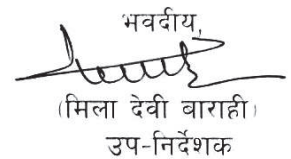 भवदीय,
(मिला देवी बाराही)
उप-निर्देशक